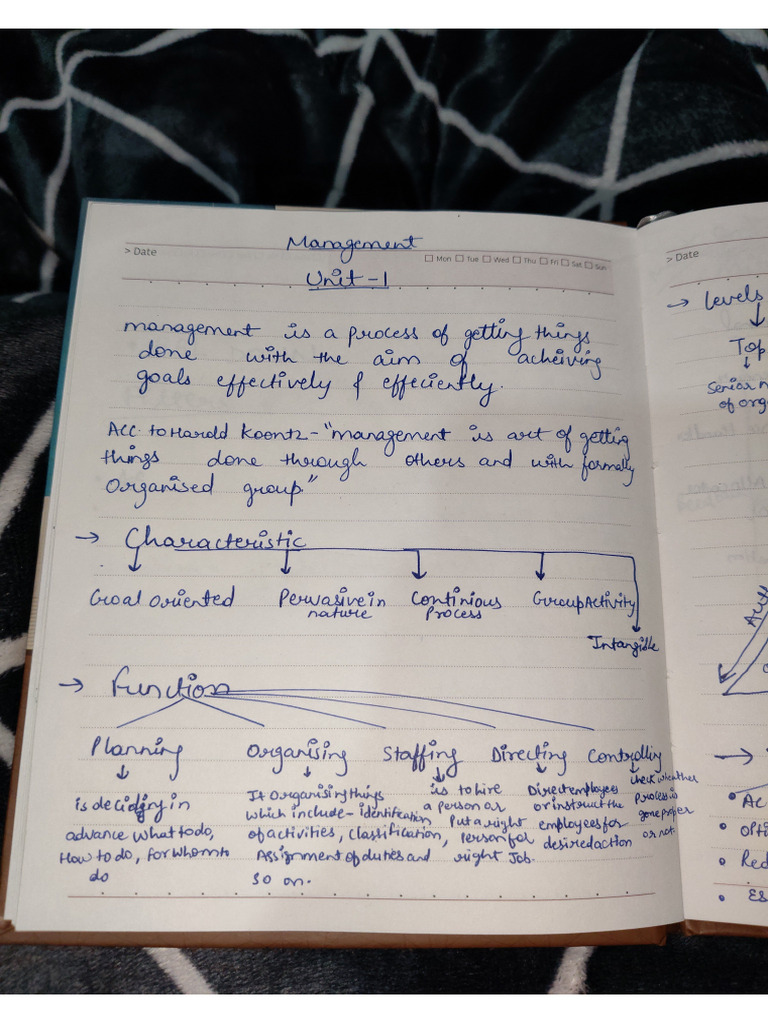 Management
> Date
Mon Tue Wed Thu Fri Sat Sun
Unit - 1
management is a process of getting things
done with the aim of acheiving
goals effectively & effeciently.
Acc. to Harold Koontz - "management is art of getting
things done through others and with formally
organised group."
→ Characteristic
Goal oriented Pervasive in Continious Group Activity
nature Process
Intangible
→ Function
Planning Organising Staffing Directing Controlling
is deciding in
advance what to do,
How to do, for whom to
do
It organising things
which include - identification
of activities, classification,
Assignment of duties and
so on.
is to hire
a person or
Put a right
person for
right Job.
Direct employees
or instruct the
employees for
desired action
check whether
process is
gone proper
or not.
> Date
→ levels
Top
Senior
of org